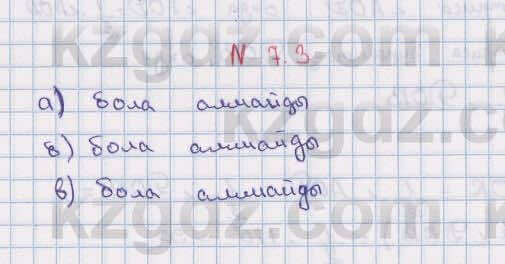 kzgdz.com
N 7.3
а) бола алмайды
б) бола алмайды
в) бола алмайды
kzgdz.com